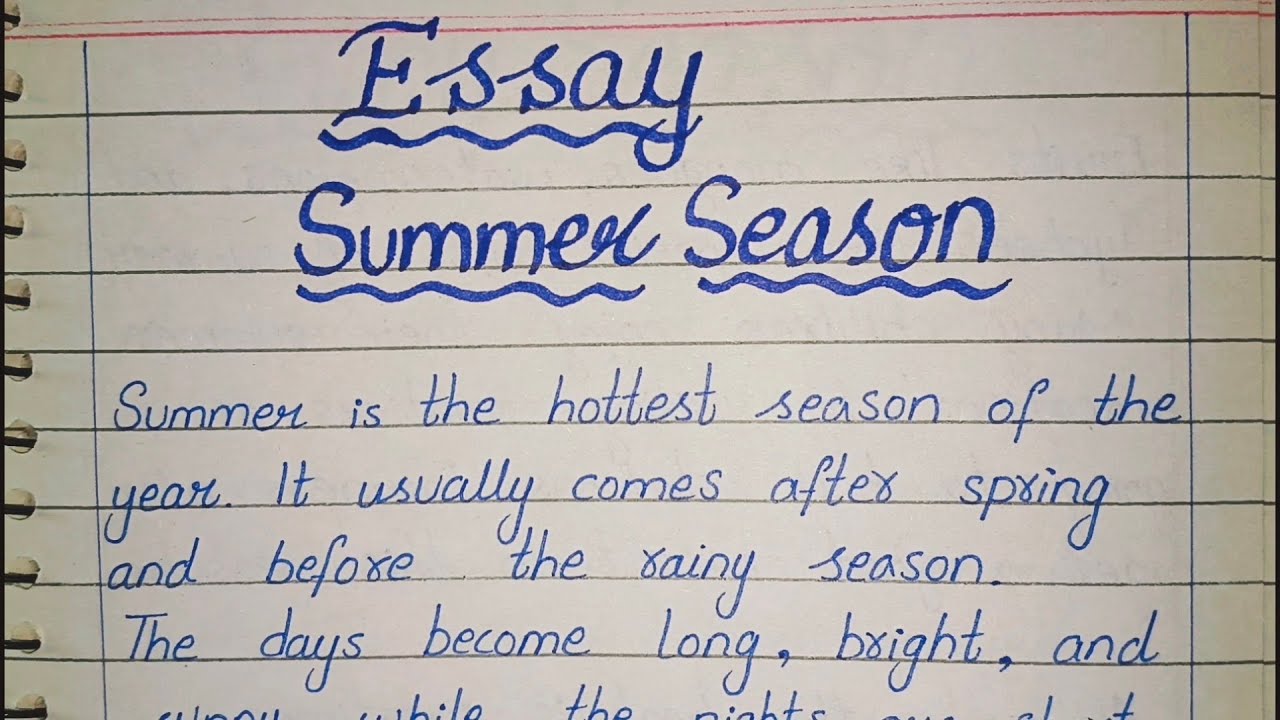 Essay
Summer Season
Summer is the hottest season of the
year. It usually comes after spring
and before the rainy season.
The days become long, bright, and
sunny while the nights are short